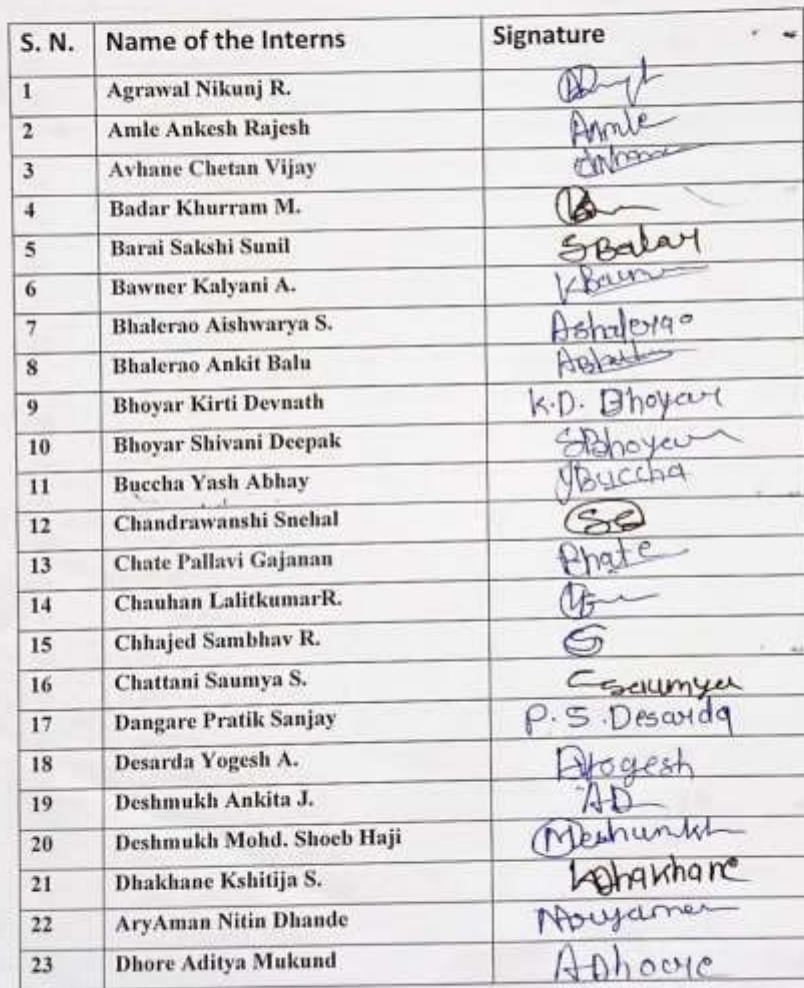 S. N. Name of the Interns Signature
1 Agrawal Nikunj R.
2 Amle Ankesh Rajesh Amle
3 Avhane Chetan Vijay
4 Badar Khurram M.
5 Barai Sakshi Sunil
6 Bawner Kalyani A.
7 Bhalerao Aishwarya S. ABhalerao
8 Bhalerao Ankit Balu
9 Bhoyar Kirti Devnath K.D. Bhoyar
10 Bhoyar Shivani Deepak SBhoyar
11 Buccha Yash Abhay YBuccha
12 Chandrawanshi Snehal SS
13 Chate Pallavi Gajanan Phate
14 Chauhan LalitkumarR.
15 Chhajed Sambhav R.
16 Chattani Saumya S. Csaumya
17 Dangare Pratik Sanjay P.S.Desarda
18 Desarda Yogesh A. DYogesh
19 Deshmukh Ankita J. AD
20 Deshmukh Mohd. Shoeb Haji
21 Dhakhane Kshitija S. KDhakhane
22 AryAman Nitin Dhande
23 Dhore Aditya Mukund ADhore